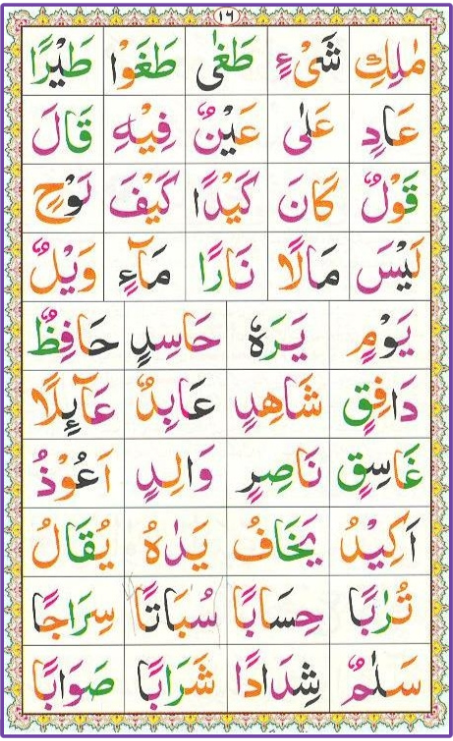 ١٦
مٰلِكِ شَیْءٍ طَغٰی طَغَوْا طَيْرًا
عَادٍ عَلٰی عَيْنٌ فِيْهِ قَالَ
قَوْلٌ كَانَ كَيْدًا كَيْفَ لَوْحٍ
لَيْسَ مَالًا نَارًا مَآءٍ وَيْلٌ
يَوْمٍ يَرَهٗ حَاسِدٍ حَافِظٌ
دَافِقٍ شَاهِدٍ عَابِدٌ عَآئِلًا
غَاسِقٍ نَاصِرٍ وَالِدٍ اَعُوْذُ
اَكِيْدُ يَخَافُ يَدٰهُ يُقَالُ
تُرٰبًا حِسَابًا سُبَاتًا سِرَاجًا
سَلٰمٌ شِدَادًا شَرَابًا صَوَابًا